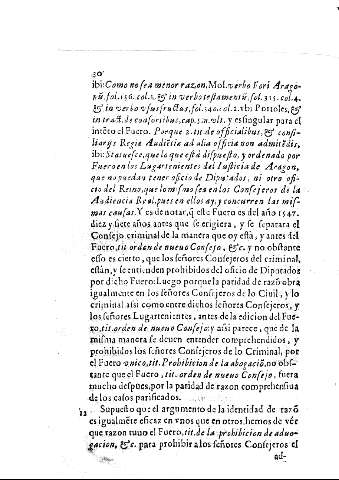 30
ibi: Como no sea menor razon, Mol. verbo Fori Arago-
nũ, fol. 156. col. 2. & in verbo testamentũ, fol. 315. col. 4.
& in verbo vsufructus, fol. 340. col. 2. ibi: Portoles,
in tract. de consortibus, cap. 5. n. vlt. y es singular para el
intẽto el Fuero. Porque 2. tit. de officialibus, & consi-
liarijs Regiæ Audiẽtiæ ad alia officia non admitẽdis,
ibi: Statuesce, que lo que està dispuesto, y ordenado por
Fuero en los Lugartenientes del Iusticia de Aragon,
que no puedan tener oficio de Diputados, ni otro ofi-
cio del Reino, que lo mismo sea en los Consejeros de la
Audiencia Real, pues en ellos ay, y concurren las mis-
mas causas. Y es de notar, q̃ este Fuero es del año 1547.
diez y siete años antes que se erigiera, y se separara el
Consejo criminal de la manera que oy està, y antes del
Fuero, tit. orden de nueuo Consejo, &c. y no obstante
esso es cierto, que los señores Consejeros del criminal,
estàn, y se entienden prohibidos del oficio de Diputados
por dicho Fuero: Luego porque la paridad de razõ obra
igualmente en los señores Consejeros de lo Ciuil, y lo
criminal assi como entre dichos señores Consejeros, y
los señores Lugartenientes, antes de la edicion del Fue-
ro, tit. orden de nueuo Consejo: y assi parece, que de la
misma manera se deuen entender comprehendidos, y
prohibidos los señores Consejeros de lo Criminal, por
el Fuero vnico, tit. Prohibicion de la abogaciõ, no obs-
tante que el Fuero, tit. orden de nueuo Consejo, fuera
mucho despues, por la paridad de razon comprehensiua
de los casos parificados.
12 Supuesto que el argumento de la identidad de razõ
es igualmẽte eficaz en vnos que en otros, hemos de vèr
que razon tuuo el Fuero, tit. de la prohibicion de aduo-
gacion, &c. para prohibir a los señores Consejeros el
ad-